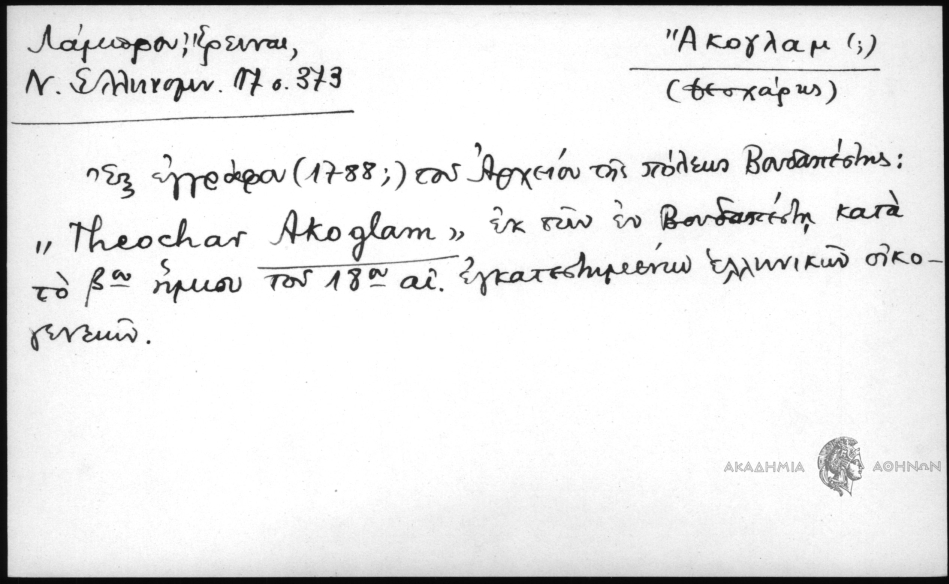 Λάμπρου, Ἔρευναι,
Ν. Ἑλληνομν. 17 σ. 373
Ἄκογλαμ (;)
(Θεοχάρης)
Ἐξ ἐγγράφου (1788;) τοῦ Ἀρχείου τῆς πόλεως Βουδαπέστης:
„Theochar Akoglam„ ἐκ τῶν ἐν Βουδαπέστῃ κατὰ
τὸ βον ἥμισυ τοῦ 18ου αἰ. ἐγκατεστημένων ἑλληνικῶν οἰκο-
γενειῶν.
ΑΚΑΔΗΜΙΑ ΑΘΗΝΩΝ